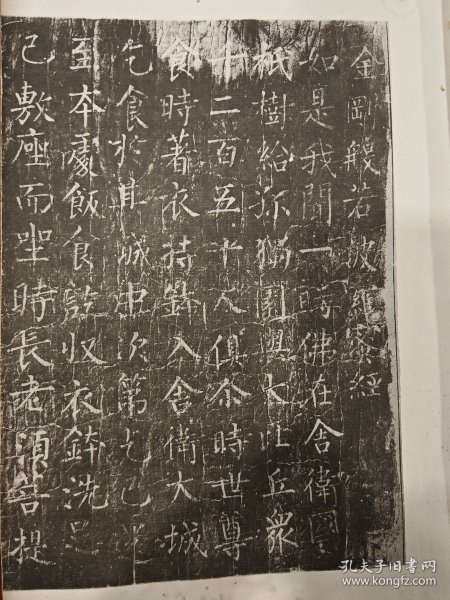 金剛般若波羅蜜經
如是我聞一時佛在舍衛國
祇樹給孤獨園與大比丘衆
千二百五十人俱尒時世尊
食時著衣持鉢入舍衛大城
乞食於其城中次第乞已還
至本處飯食訖收衣鉢洗足
已敷座而坐時長老須菩提
孔夫子旧书网
www.kongfz.com